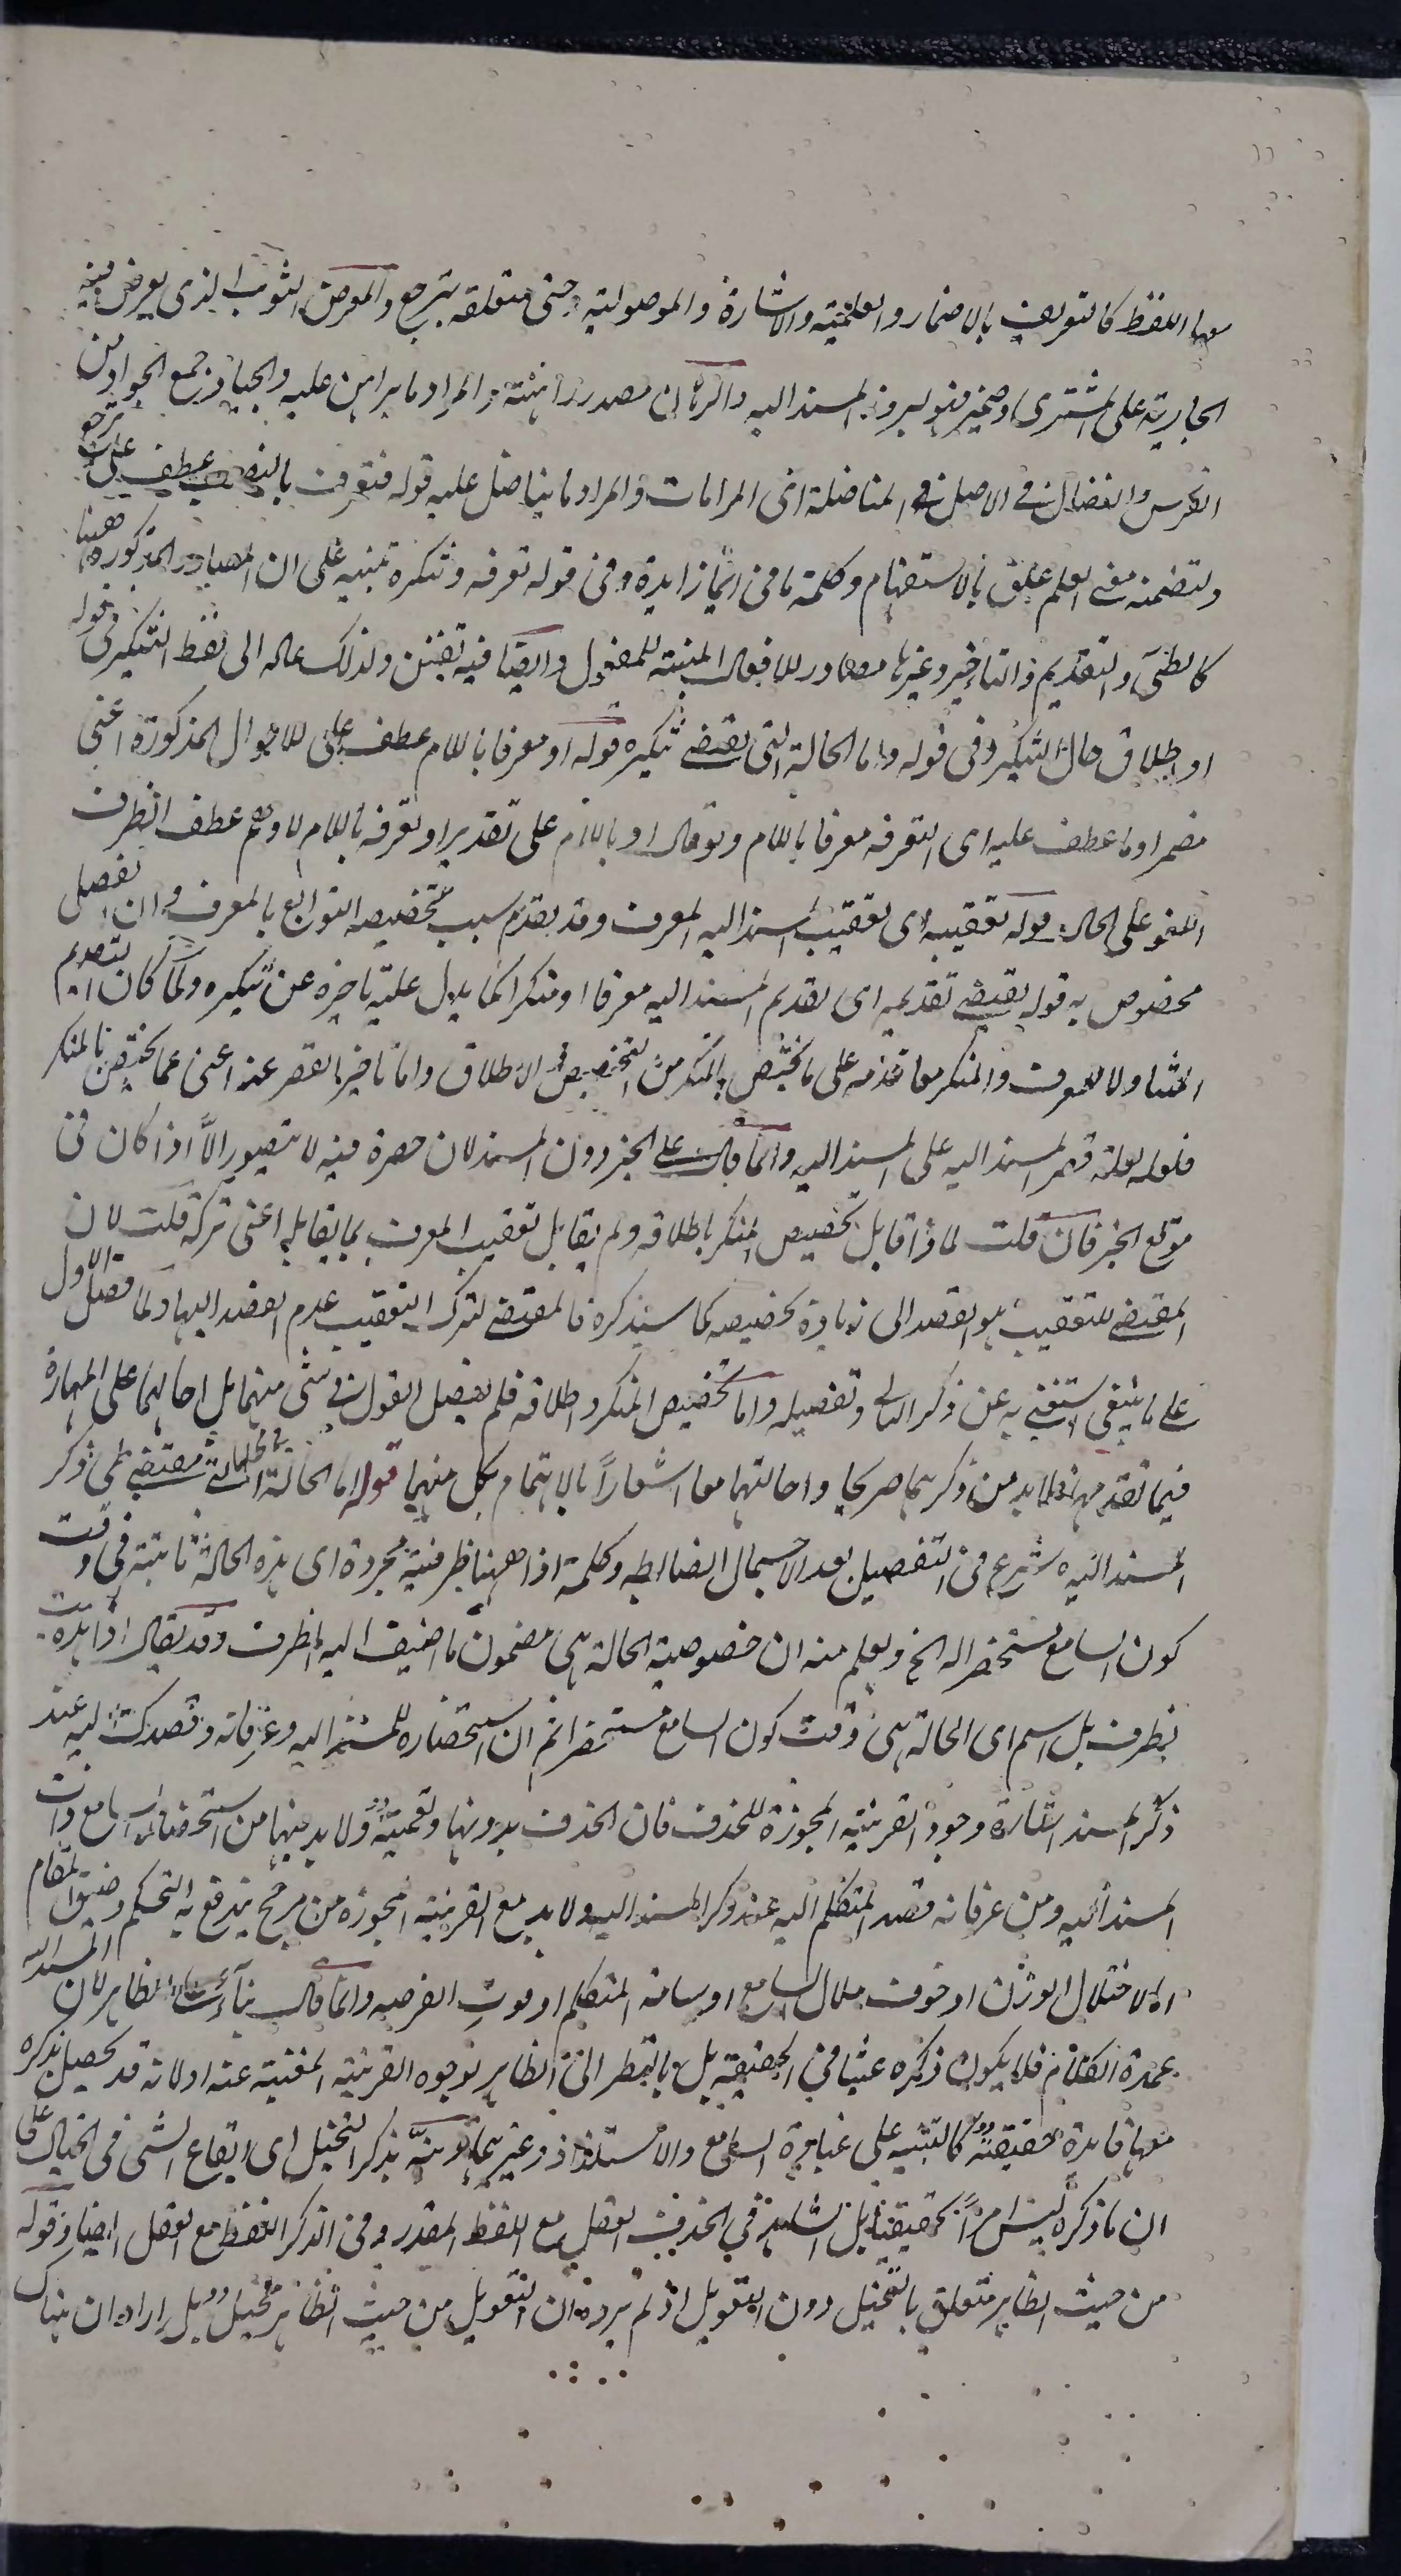 معها اللفظ كالتعريف بالاضمار والعلمية والاشارة والموصولية وحتى متعلقة بترجع والمعرض الثوب الذى يعرض فيه
الجارية على المشترى وضمير فنو ليروز المسند اليه والرهان مصدر راهنته والمراد ما يراهن عليه والجياد جمع الجواد من
الفرس والنضال فى الاصل المناضلة اى المرامات والمراد ما يناضل عليه قوله فتعرف بالنصب عطف على ترجع
ولتضمنه معنى العلم علق بالاستفهام وكلمة ما فى ايما زايدة وفى قوله تعرفه وتنكره تنبيه على ان المصادر المذكورة ههنا
كالطى والتقديم والتاخير وغيرها مصادر للافعال المبنية للمفعول وايضا فيه تفنن ولذلك عاد الى لفظ التنكير فى قوله
او اطلاق حال التنكير وفى قوله واما الحالة التى تقتضى تنكيره قوله او معرفا باللام عطف على الاحوال المذكورة اعنى
مضمرا وما عطف عليه اى التعرفه معرفا باللام ولو قال او باللام على تقدير او تعرفه باللام لاوهم عطف الظرف
اللغو على الحال قوله تعقيبه اى تعقيب المسند اليه المعرف وقد تقدم سبب تخصيصه التوابع بالمعرف وان الفصل
مخصوص به قوله يقتضى تقديمه اى تقديم المسند اليه معرفا او منكرا كما يدل عليه تاخيره عن تنكيره ولما كان التقديم
متناولا للمعرف والمنكر معا قدمه على ما يختص بالمنكر من التخصيص والاطلاق واما تاخير القصر عنه اعنى عما يختص بالمنكر
فلعله لقلة قصر المسند اليه على المسند اليه وانما قال على الخبر دون المسند لان حصره فيه لا يتصور الا اذا كان فى
موقع الخبر فان قلت لماذا قابل تخصيص المنكر باطلاقه ولم يقابل تعقيب المعرف بما يقابله اعنى تركه قلت لان
المقتضى للتعقيب هو القصد الى زيادة تخصيصه كما سيذكره فالمقتضى لترك التعقيب عدم القصد اليها ولما فصل الاول
على ما ينبغى استغنى به عن ذكر الثانى وتفصيله واما تخصيص المنكر واطلاقه فلم يفصل القول فى شئ منهما بل احالهما على المهارة
فيما تقدم فلابد من ذكرهما صريحا واحالتهما معا اشعارا بالاهتمام بكل منهما قوله اما الحالة التى تقتضى طى ذكر
المسند اليه شرع فى التفصيل بعد الاجمال الضابط وكلمة اذا ههنا ظرفية مجردة اى هذه الحالة ثابتة فى وقت
كون السامع مستحضرا له الخ ويعلم منه ان خصوصية الحالة هى مضمون ما اضيف اليه الظرف وقد يقال اذا هذه ليست
بظرف بل اسم اى الحالة هى وقت كون السامع مستحضرا ثم ان استحضاره للمسند اليه وعرفانه وقصدك اليه عند
ذكر المسند اشارة وجود القرينة المجوزة للحذف فان الحذف بدونها ولا بد فيها من استحضار السامع ذات
المسند اليه ومن عرفانه قصد المتكلم اليه عند ذكر المسند اليه ولا بد مع القرينة المجوزة من مرجح يندفع به التحكم وضيق المقام
اما لاختلال الوزن او خوف ملال السامع او سامة المتكلم او فوت الفرصة وانما قال بناء على الظاهر لان المسند اليه
عمدة الكلام فلا يكون ذكره عبثا فى الحقيقة بل بالنظر الى الظاهر لوجود القرينة المغنية عنه اولانه قد يحصل بذكره
معها فائدة حقيقية كالتنبيه على غباوة السامع والاستلذاذ وغيرهما ونبه بذكر التخييل اى ايقاع الشئ فى الخيال على
ان ما ذكره ليس امرا تحقيقيا بل الشاهد فى الحذف العقل مع اللفظ المقدر وفى الذكر اللفظ مع العقل ايضا وقوله
من حيث الظاهر متعلق بالتخييل دون التعويل اذ لم يرد ان التعويل من حيث الظاهر تخييل بل اراد ان هناك